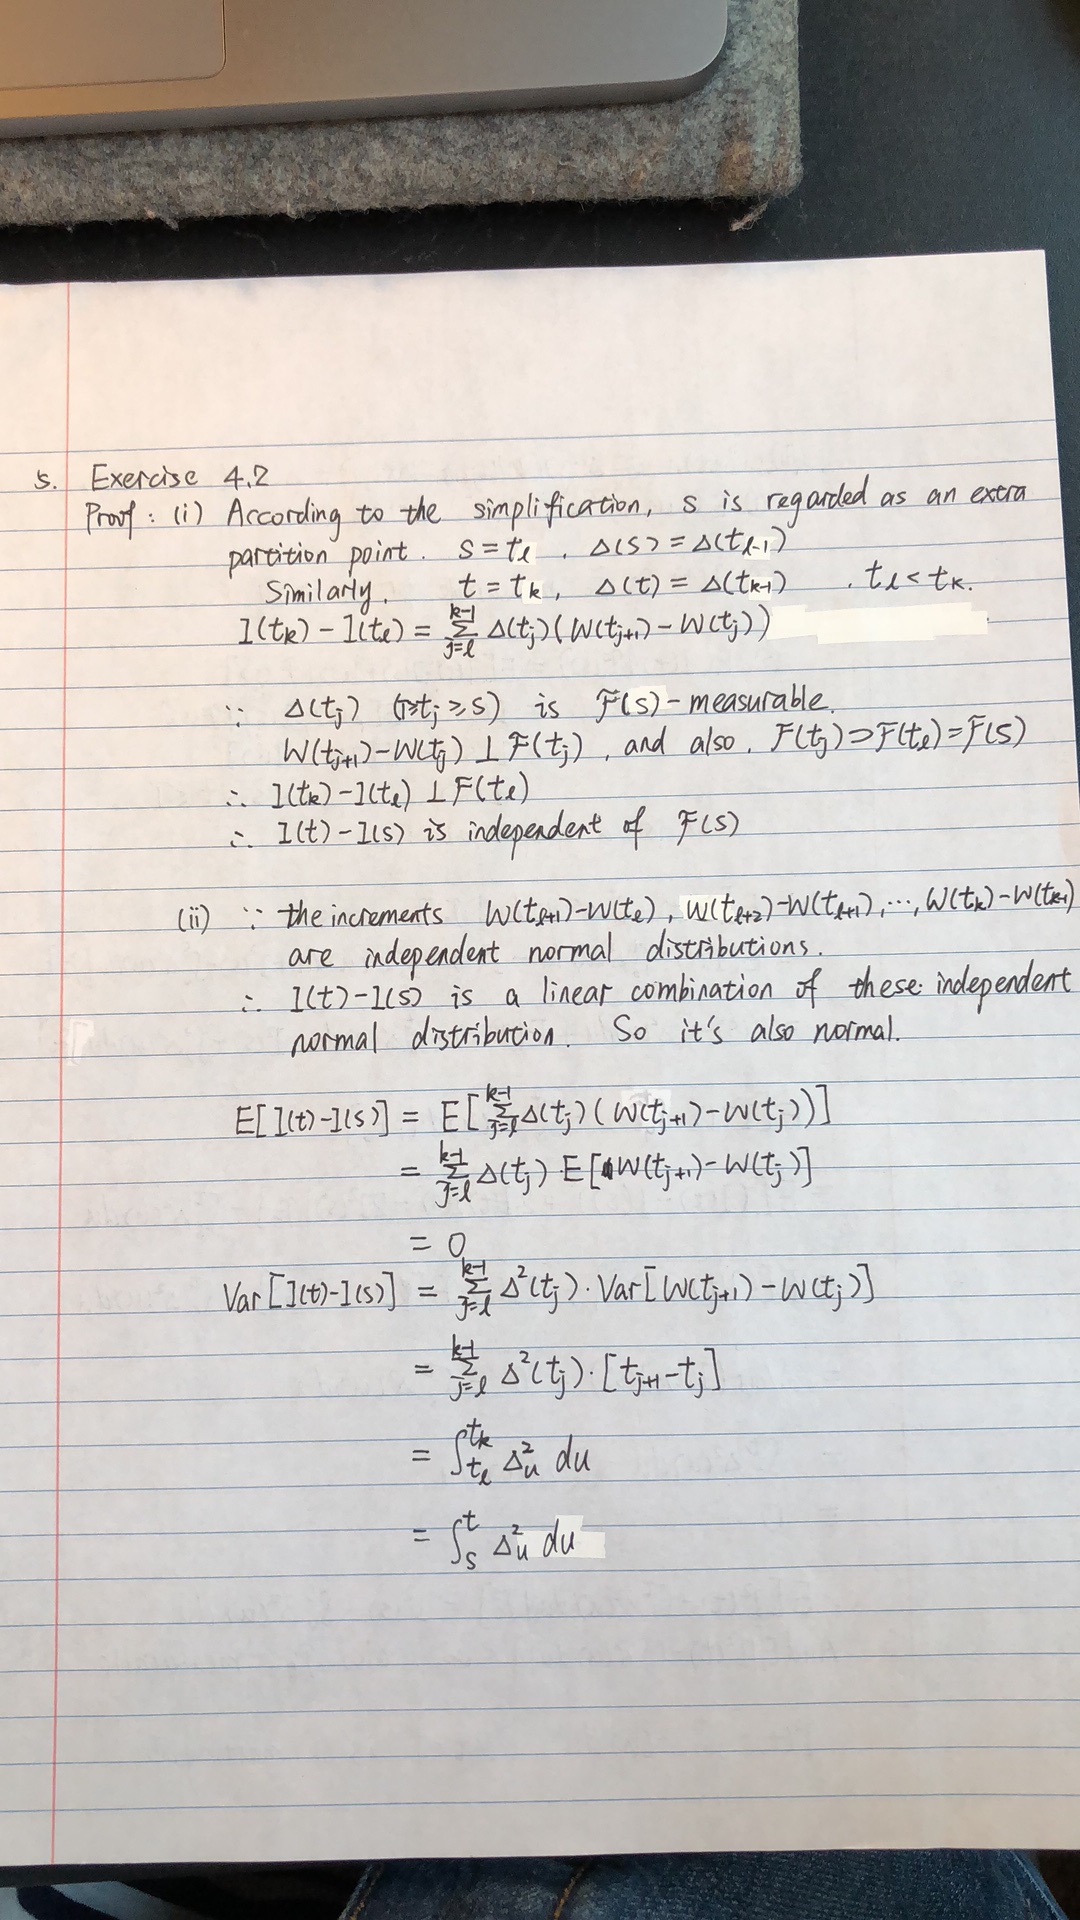 5. Exercise 4.2
Proof: (i) According to the simplification, s is regarded as an extra
partition point. s = t_ℓ, Δ(s) = Δ(t_{ℓ-1})
Similarly, t = t_k, Δ(t) = Δ(t_{k-1}), t_ℓ < t_k.
I(t_k) - I(t_ℓ) = Σ_{j=ℓ}^{k-1} Δ(t_j)(W(t_{j+1}) - W(t_j))
∵ Δ(t_j) (T≥t_j≥s) is F(s)-measurable.
W(t_{j+1})-W(t_j) ⊥ F(t_j), and also, F(t_j)⊃F(t_ℓ)=F(s)
∴ I(t_k)-I(t_ℓ) ⊥ F(t_ℓ)
∴ I(t)-I(s) is independent of F(s)
(ii) ∵ the increments W(t_{ℓ+1})-W(t_ℓ), W(t_{ℓ+2})-W(t_{ℓ+1}), ..., W(t_k)-W(t_{k-1})
are independent normal distributions.
∴ I(t)-I(s) is a linear combination of these independent
normal distribution. So it's also normal.
E[I(t)-I(s)] = E[Σ_{j=ℓ}^{k-1} Δ(t_j)(W(t_{j+1})-W(t_j))]
= Σ_{j=ℓ}^{k-1} Δ(t_j)·E[W(t_{j+1})-W(t_j)]
= 0
Var[I(t)-I(s)] = Σ_{j=ℓ}^{k-1} Δ²(t_j)·Var[W(t_{j+1})-W(t_j)]
= Σ_{j=ℓ}^{k-1} Δ²(t_j)·[t_{j+1}-t_j]
= ∫_{t_ℓ}^{t_k} Δ_u² du
= ∫_s^t Δ_u² du